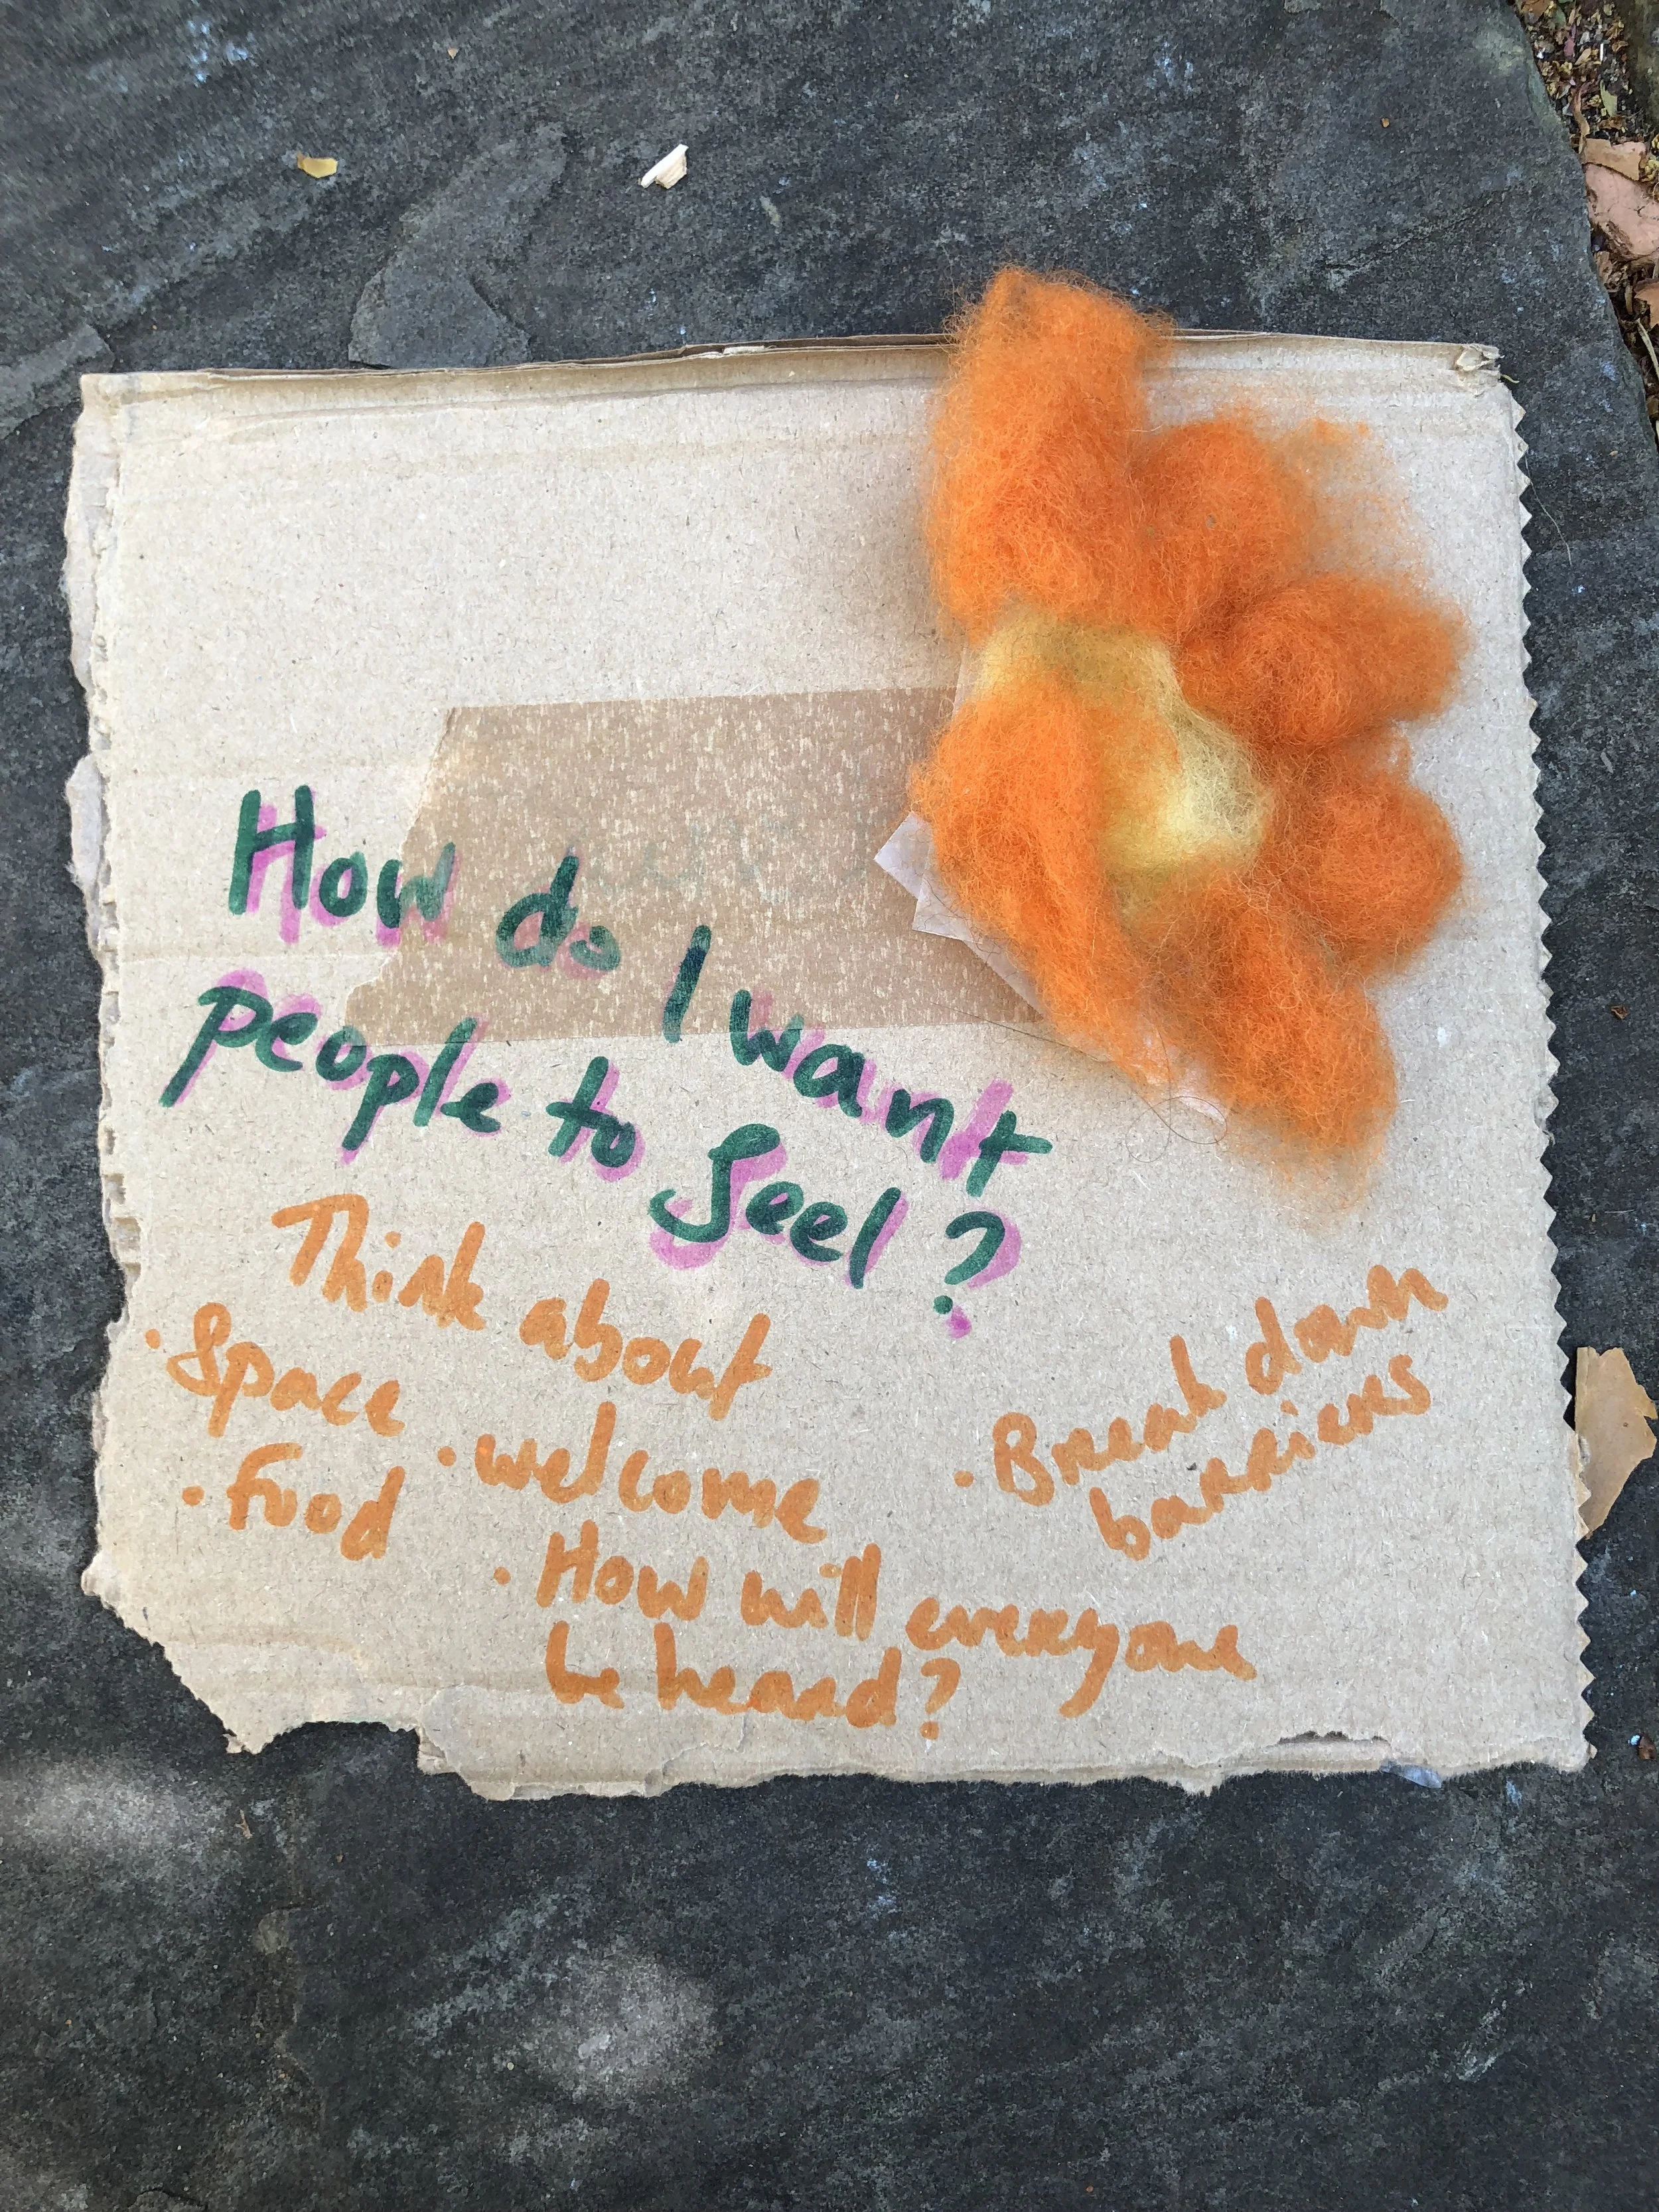 How do I want
people to feel?
Think about
· Space
· Food
· welcome
· How will everyone
be heard?
· Break down
barriers